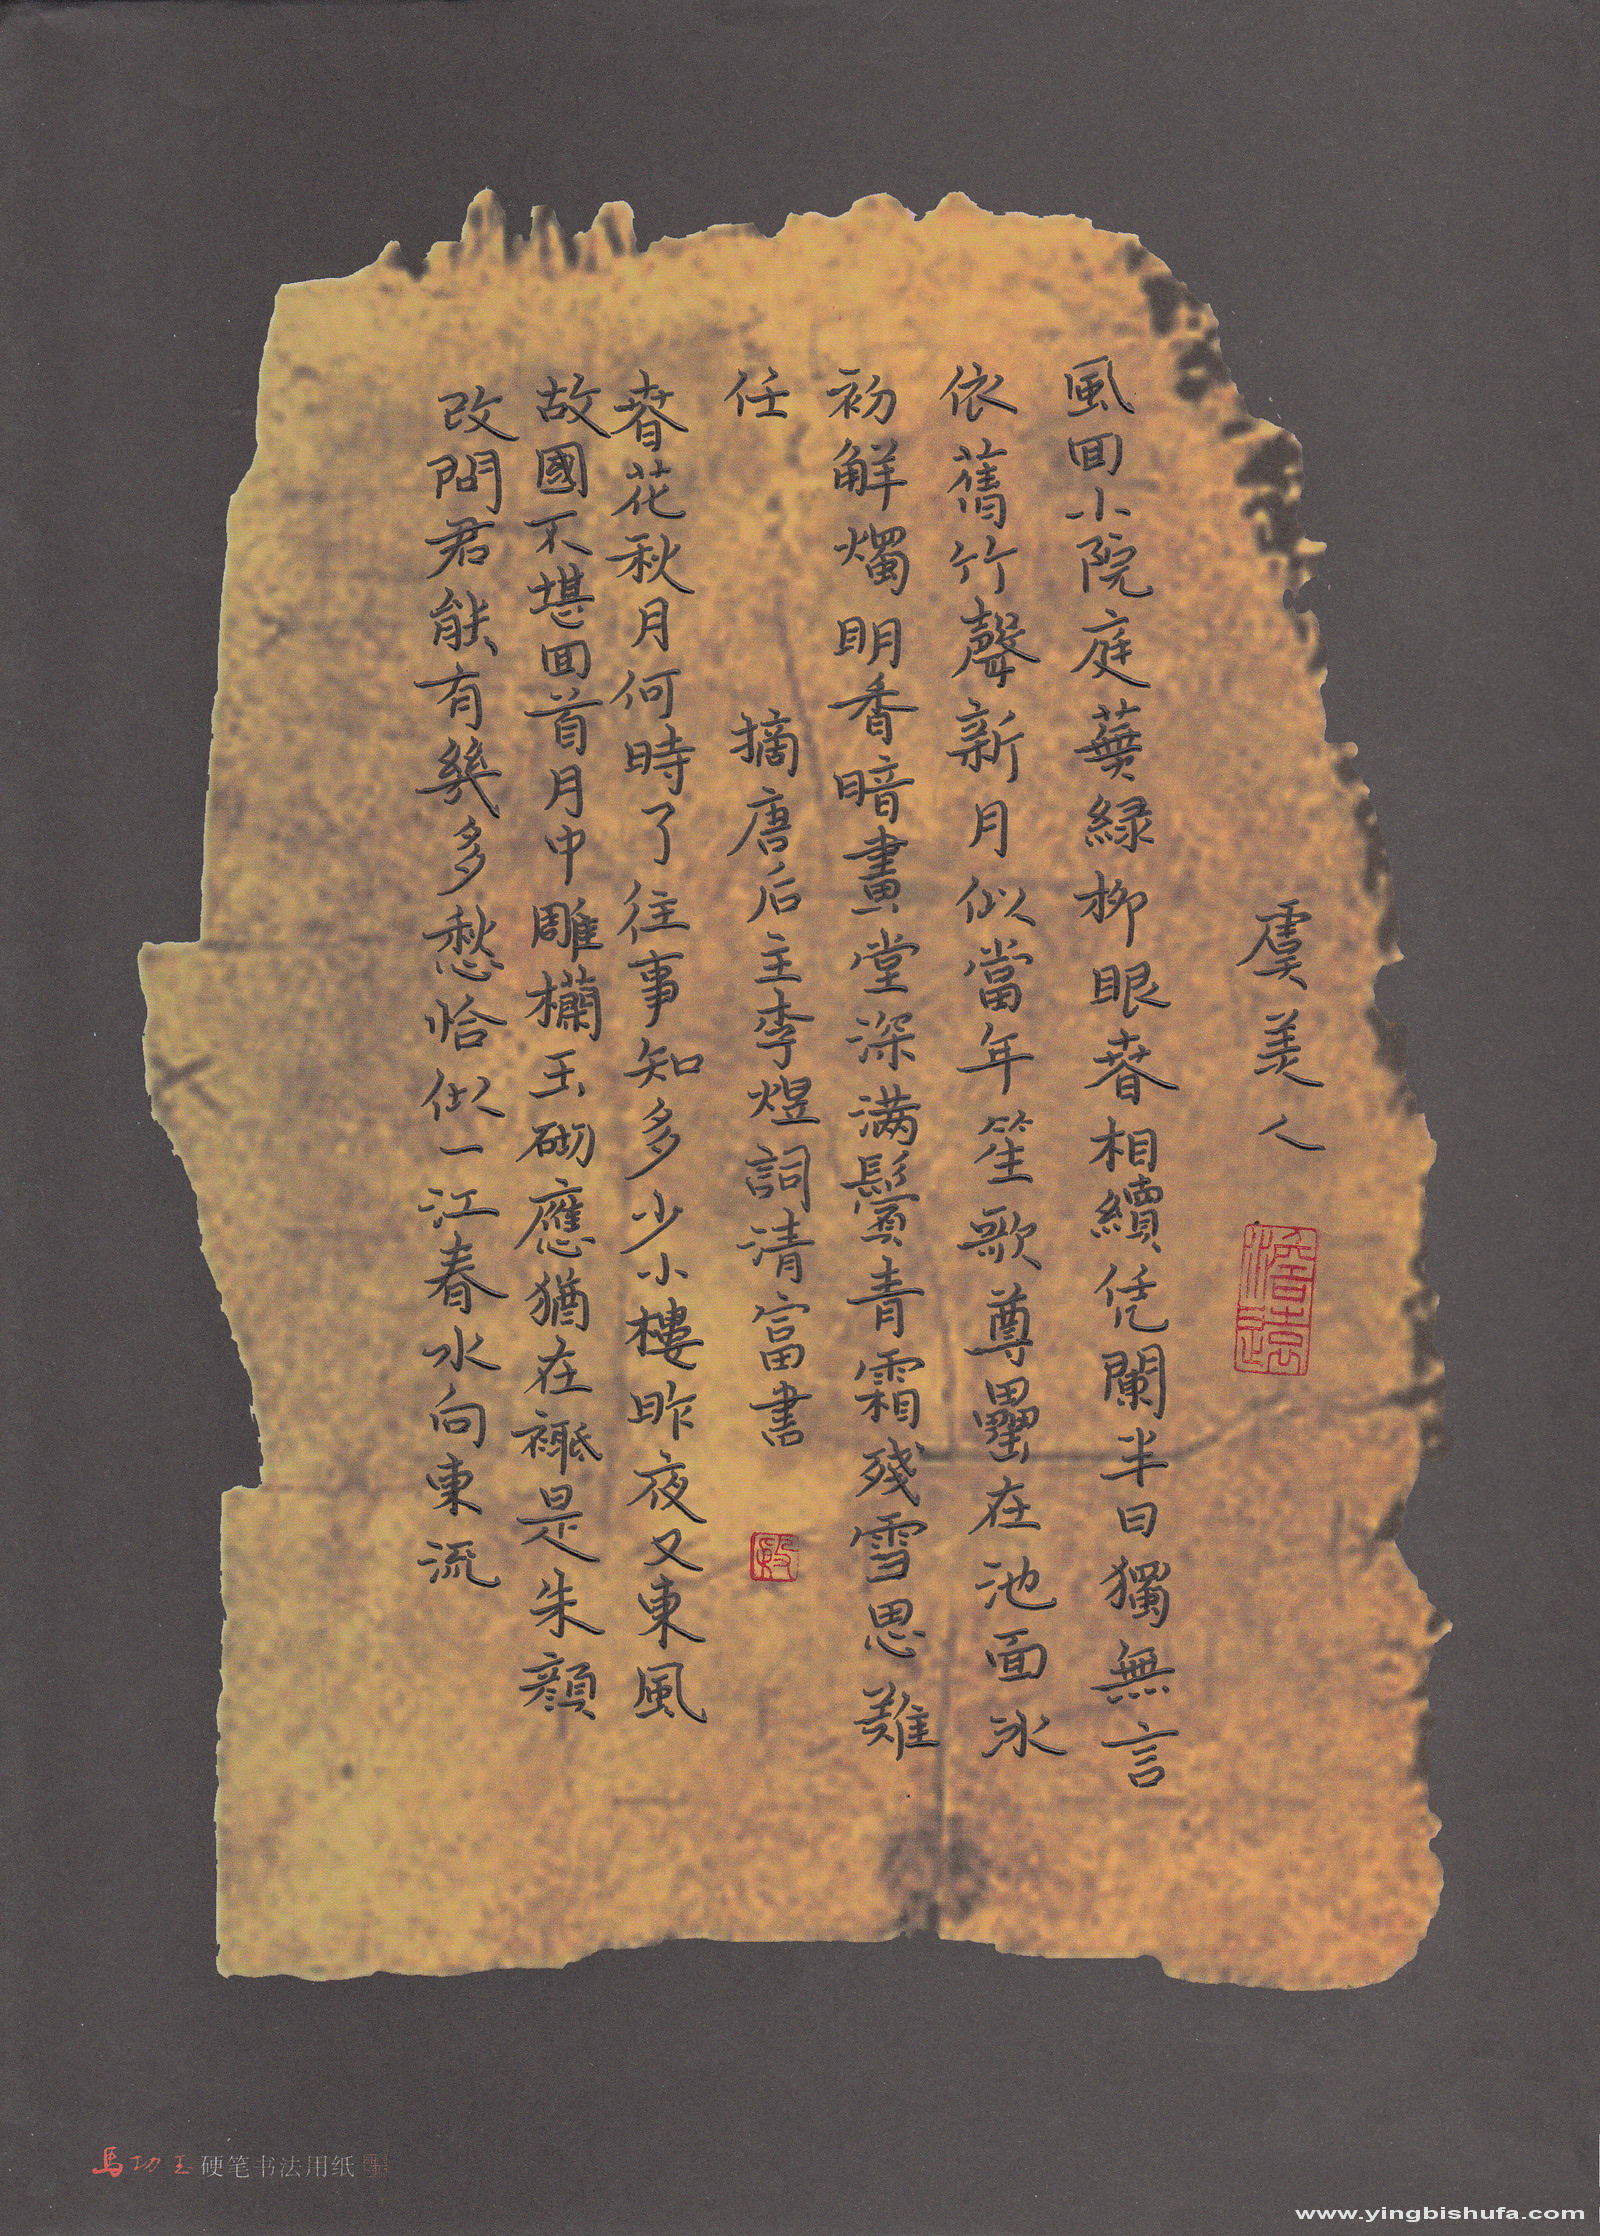 虞美人
風回小院庭蕪緑柳眼春相續凭闌半日獨無言
依舊竹聲新月似當年笙歌尊罍在池面冰
初解燭明香暗畫堂深满鬢青霜殘雪思難
任　摘唐后主李煜詞清富書
春花秋月何時了往事知多少小樓昨夜又東風
故國不堪回首月中雕欄玉砌應猶在祗是朱顔
改問君能有幾多愁恰似一江春水向東流
硬笔书法用纸
www.yingbishufa.com